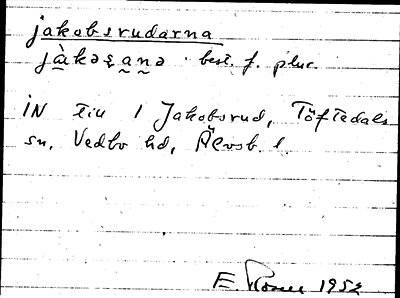 jakobsrudarna
jàkəȿanə best. f. plur.
IN till 1 Jakobsrud, Töftedals
sn, Vedbo hd, Älvsb. l.
E. 1952